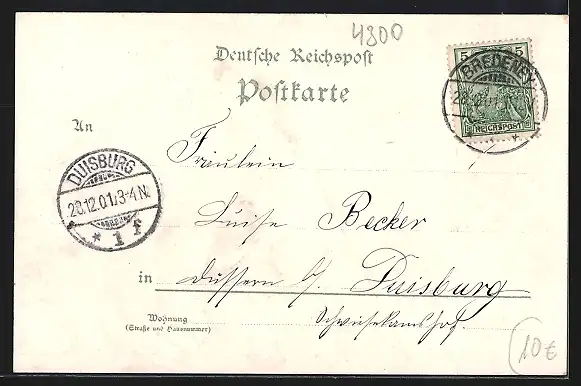 4300
Deutsche Reichspost
Postkarte
5 5
REICHSPOST
BREDENEY
An
Fräulein
DUISBURG
28.12.01.3-4N.
* 1 f
Luise Becker
in Düssern b/ Duisburg
Wohnung
(Straße und Hausnummer)
10€